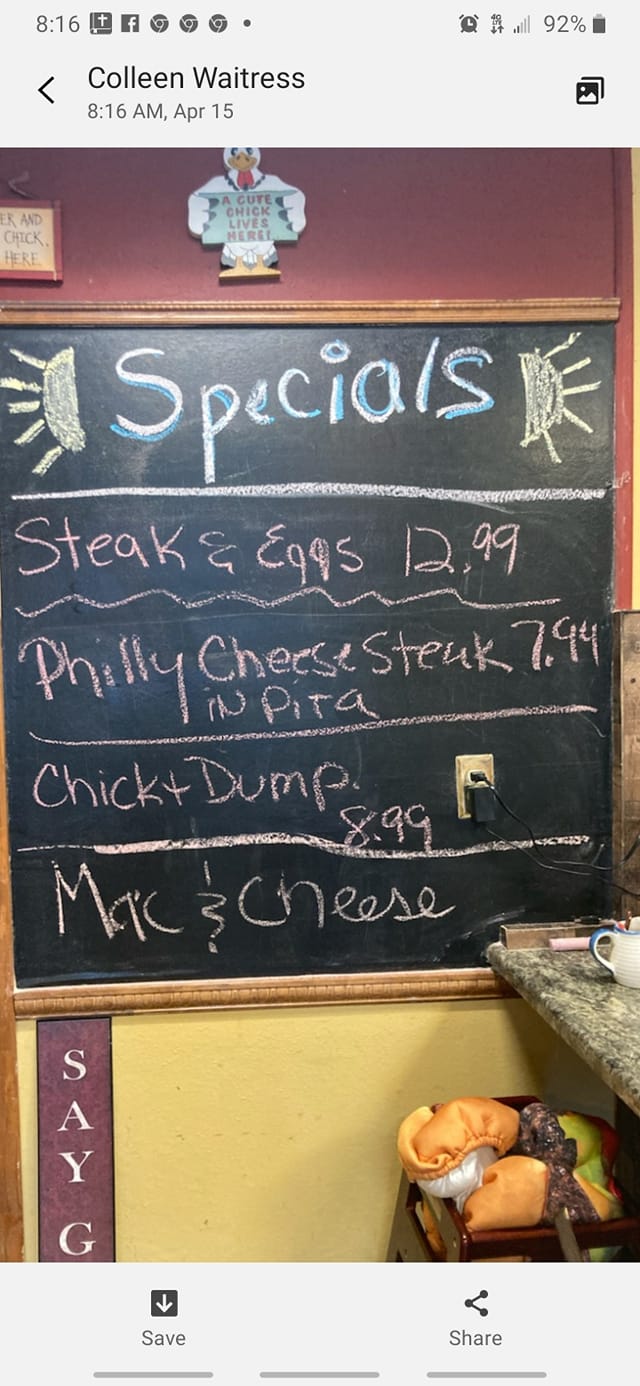 8:16
92%
Colleen Waitress
8:16 AM, Apr 15
ER AND
CHICK,
HERE
A CUTE
CHICK
LIVES
HERE!
Specials
Steak & Eggs 12.99
Philly Cheese Steak 7.99
in Pita
Chick + Dump.
8.99
Mac & Cheese
S
A
Y
G
Save
Share